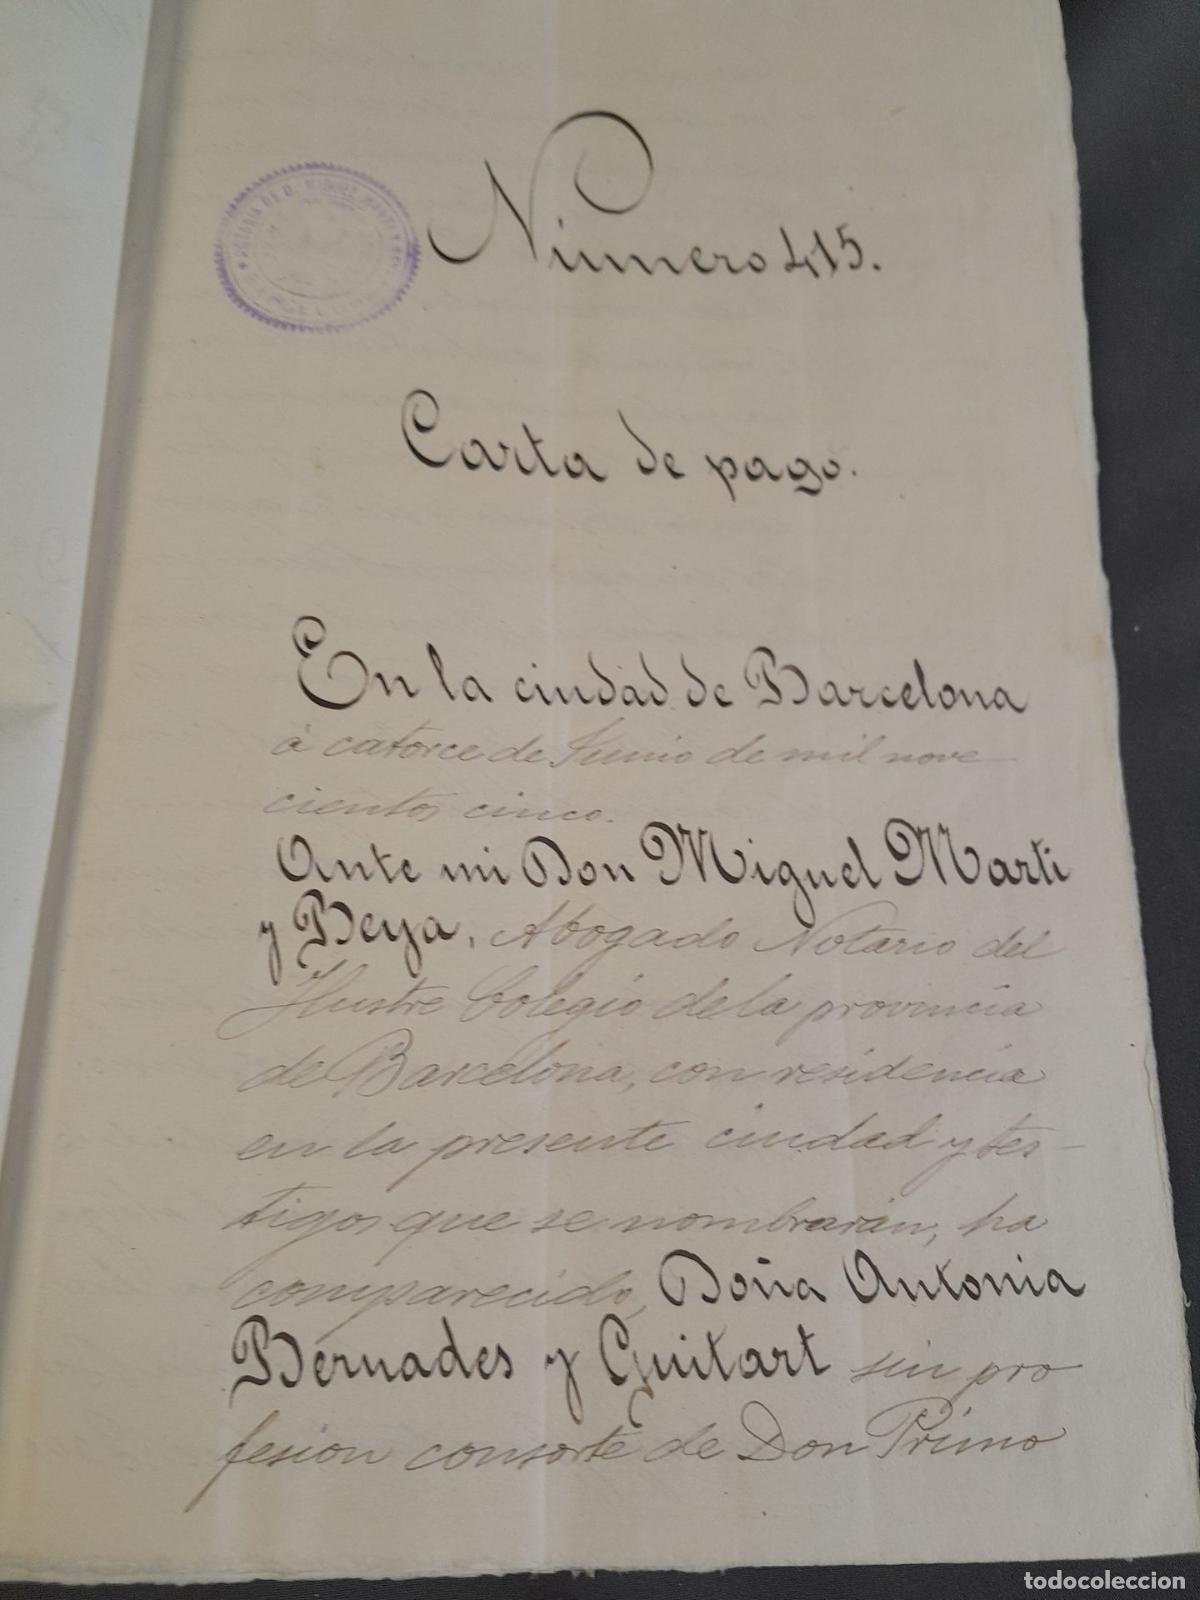 NOTARIA DE D. MIGUEL MARTI Y BEYA
BARCELONA
Número 415.
Carta de pago.
En la ciudad de Barcelona
á catorce de Junio de mil nove
cientos cinco.
Ante mi Don Miguel Marti
y Beya, Abogado Notario del
Ilustre Colegio de la provincia
de Barcelona, con residencia
en la presente ciudad y tes-
tigos que se nombrarán, ha
comparecido, Doña Antonia
Bernades y Guitart sin pro
fesion consorte de Don Primo
todocoleccion